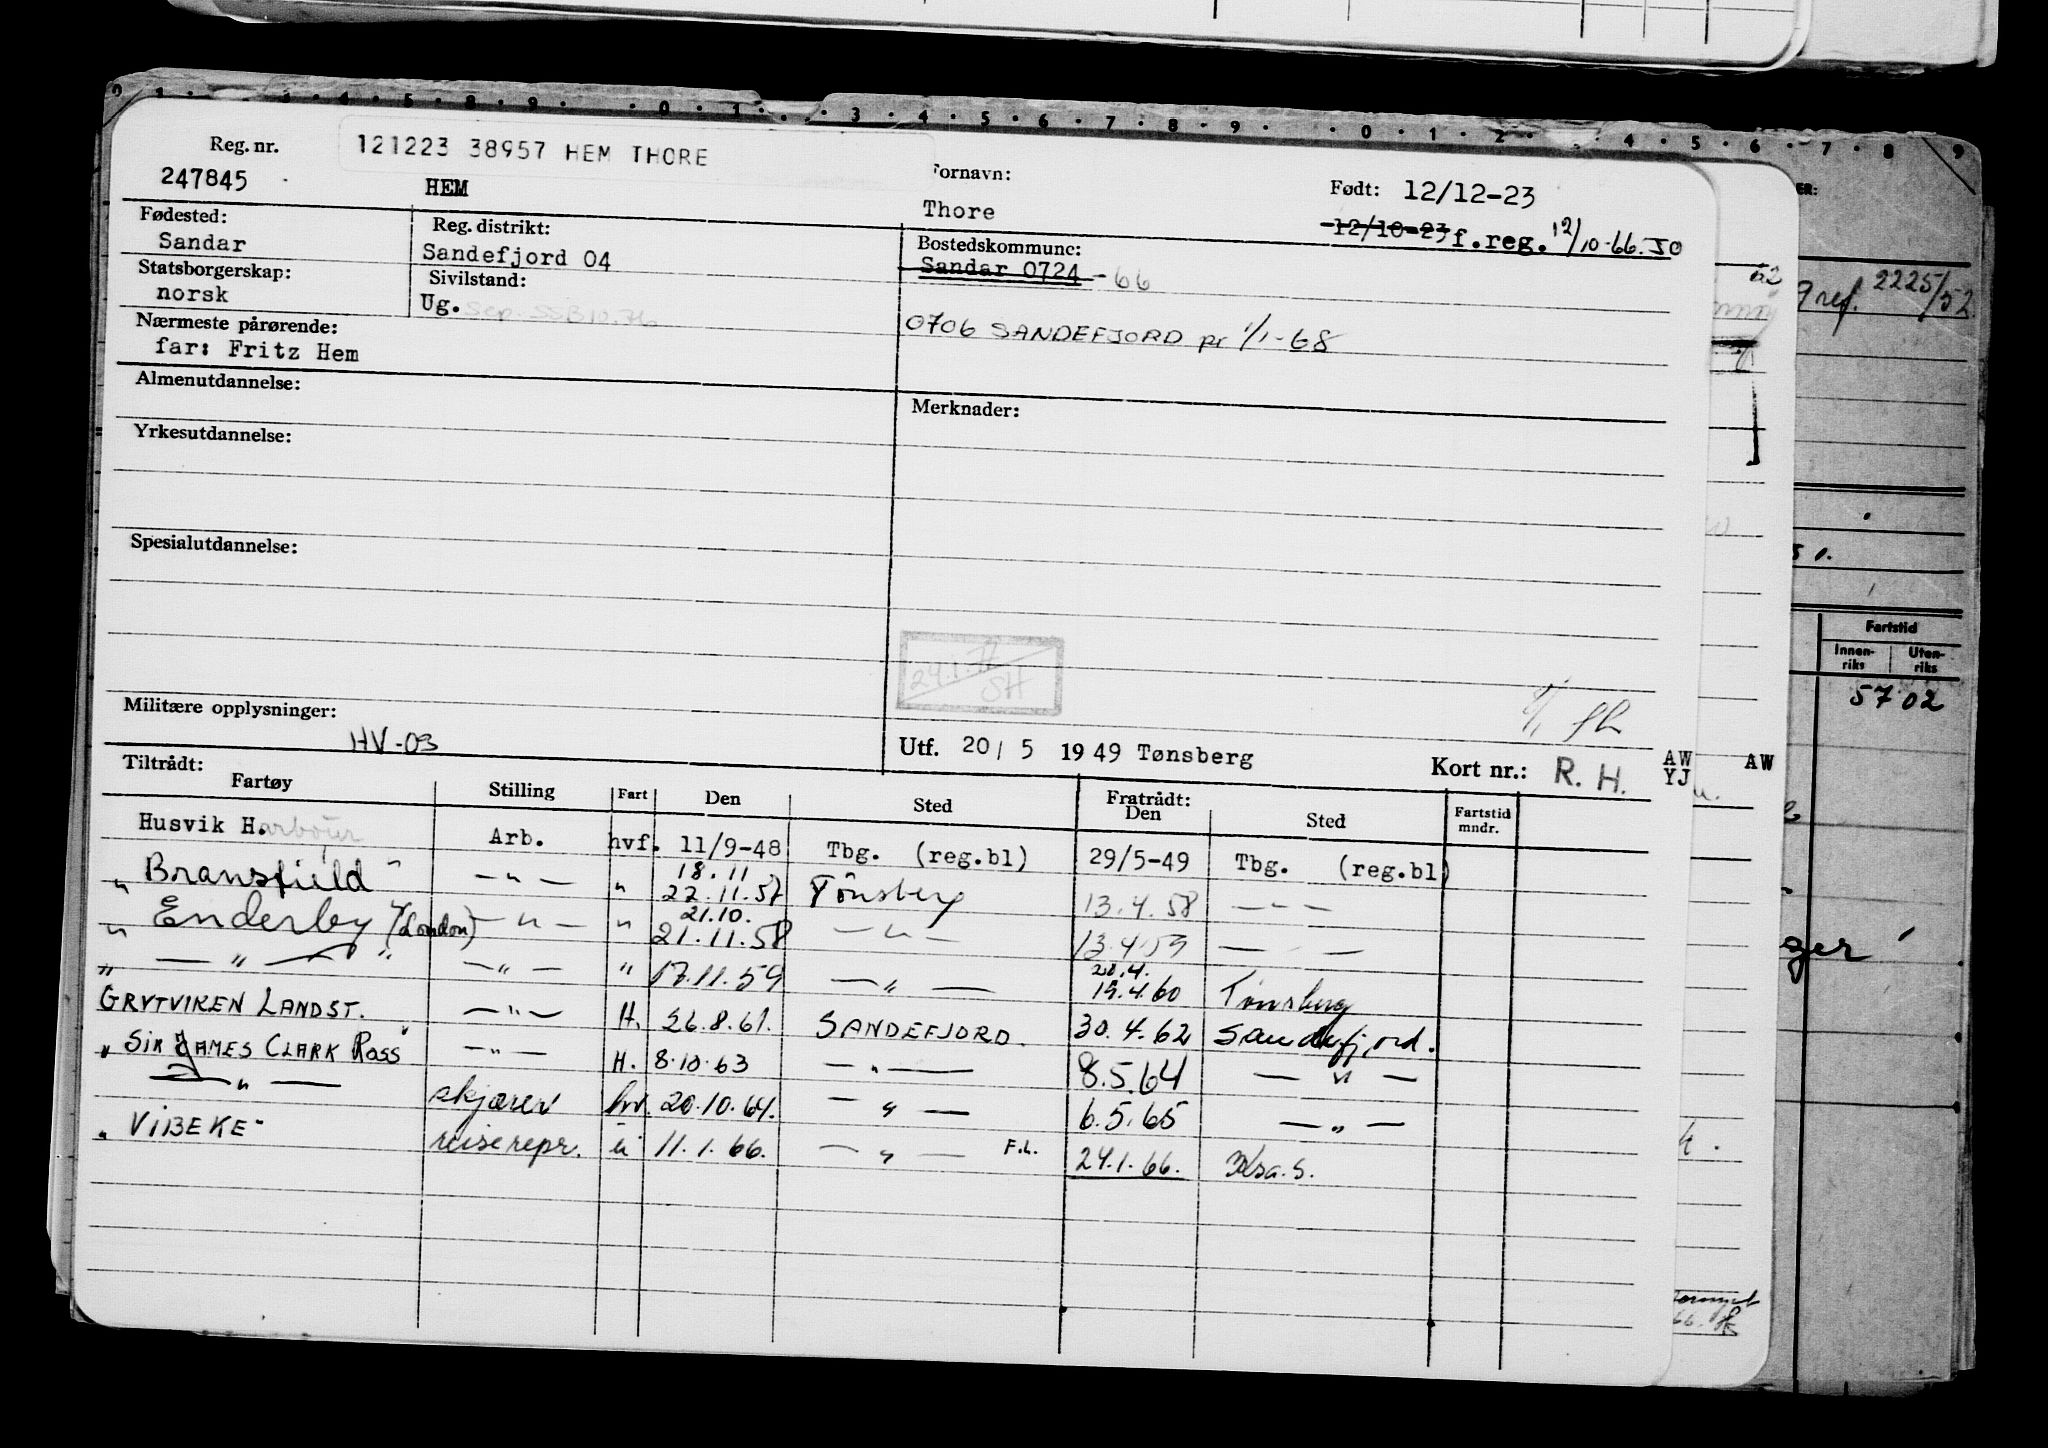 Reg. nr.
121223 38957 HEM THORE
247845
HEM
Fornavn:
Thore
Født: 12/12-23
12/10-23 f.reg. 12/10-66. JO
Fødested:
Sandar
Reg. distrikt:
Sandefjord 04
Bostedskommune:
Sandar 0724 - 66
Statsborgerskap:
norsk
Sivilstand:
Ug.
0706 SANDEFJORD pr 1/1-68
Nærmeste pårørende:
far: Fritz Hem
Almenutdannelse:
Merknader:
Yrkesutdannelse:
Spesialutdannelse:
24.1.72
SH
Militære opplysninger:
HV-03
Utf. 20/5 1949 Tønsberg
Kort nr.: R. H.
AW
YJ
AW
Tiltrådt:
Fartøy Stilling Fart Den Sted Fratrådt: Den Sted Fartstid mndr.
Husvik Harbour Arb. hvf. 11/9-48 Tbg. (reg.bl) 29/5-49 Tbg. (reg.bl)
18.11
" Bransfield" — " — " 22.11.57 Tønsberg 13.4.58 — " —
21.10.
" Enderby" (London) — " — " 21.11.58 — " — 13.4.59 — " —
20.4.
" — " — " — " — " 17.11.59 — " — 19.4.60 Tønsberg
GRYTVIKEN LANDST. — " — H. 26.8.61. SANDEFJORD. 30.4.62 Sandefjord.
" SIR JAMES CLARK ROSS" — " — H. 8.10.63 — " — 8.5.64 — " —
— " — skjærer hv. 20.10.64. — " — 6.5.65 — " —
" VIBEKE" reiserepr. u 11.1.66. — " — F.h. 24.1.66.
2225/52
Fartstid
Innen-
riks
Uten-
riks
5702